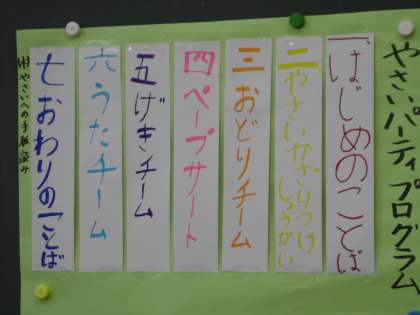 やさいパーティプログラム
一はじめのことば
二やさいかざりつけ
しょうかい
三おどりチーム
四ペープサート
五げきチーム
六うたチーム
七おわりのことば
※やさいへの手紙読み